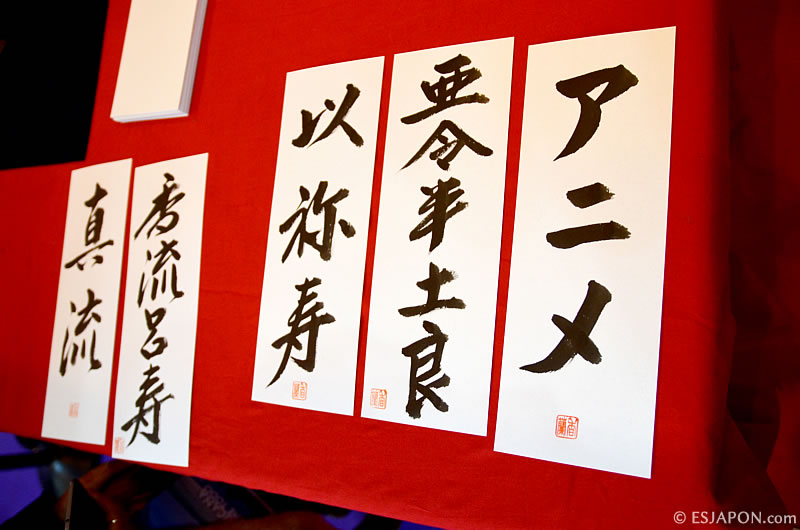 アニメ
亜令半土良
以祢寿
香流呂寿
真流
© ESJAPON.com